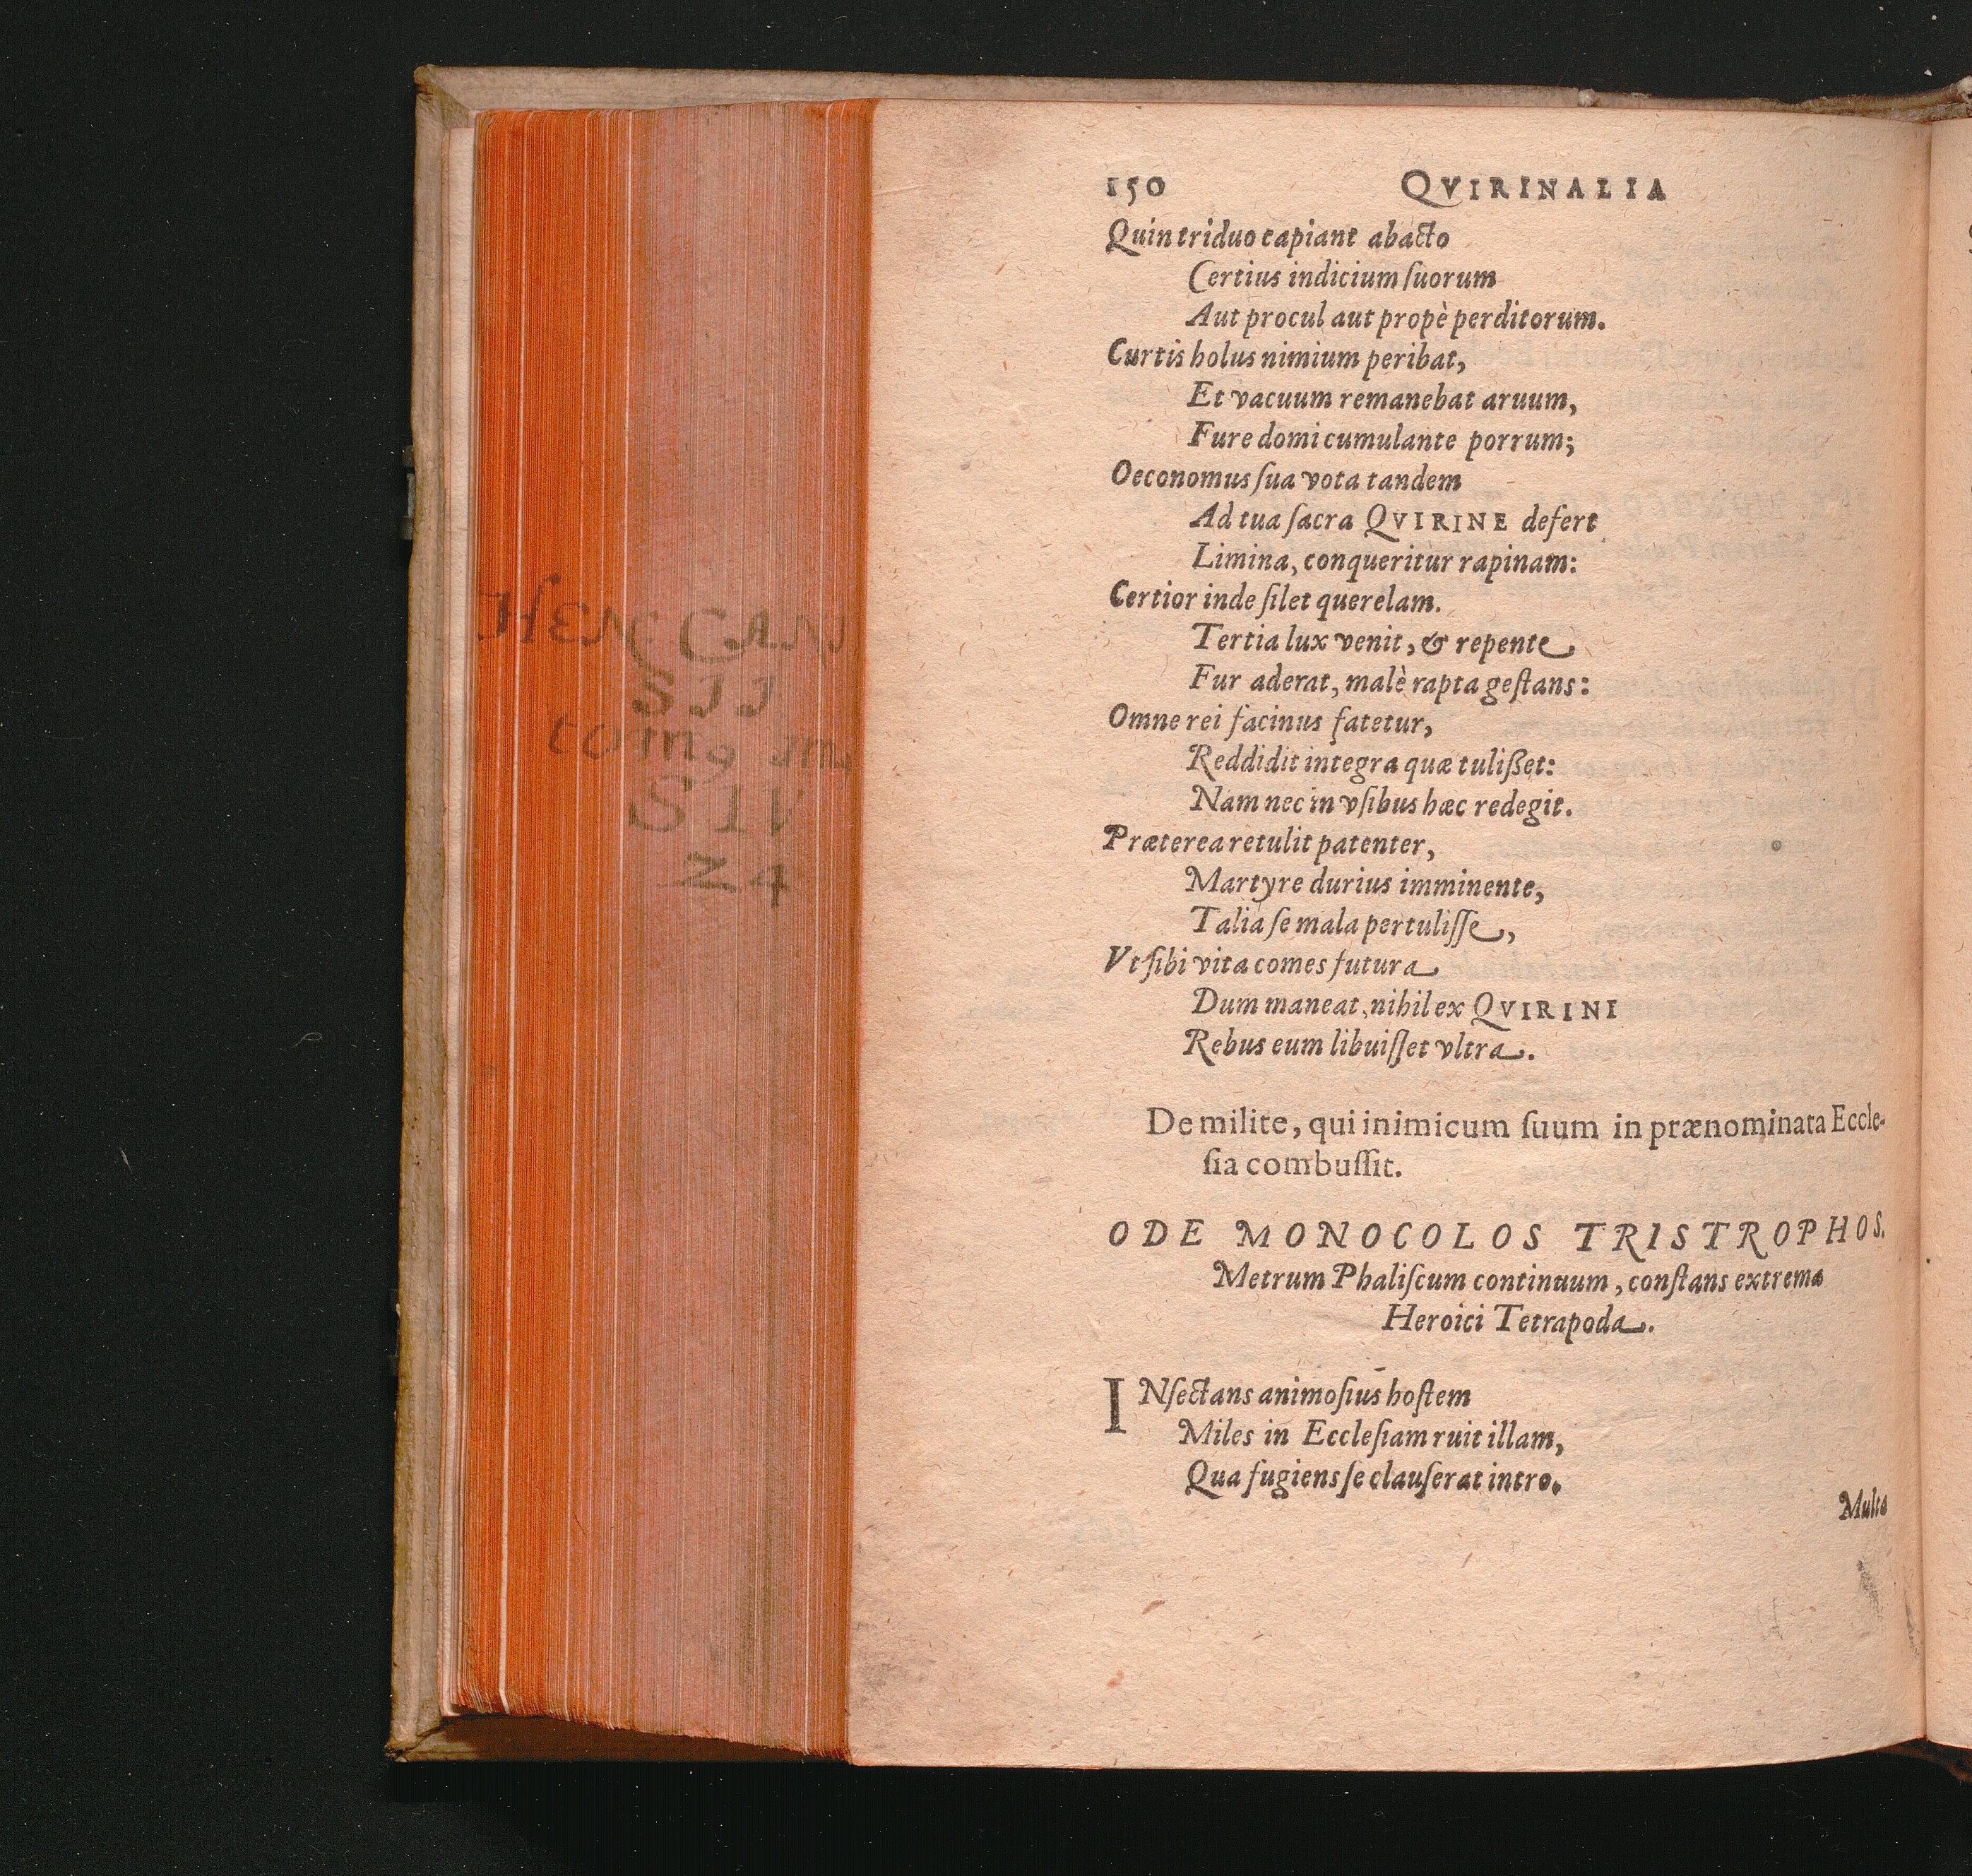 HEN CAN
SII
tomg
SIV
24
150 QVIRINALIA
Quin triduo capiant abacto
Certius indicium ſuorum
Aut procul aut propè perditorum.
Curtis holus nimium peribat,
Et vacuum remanebat aruum,
Fure domi cumulante porrum;
Oeconomus ſua vota tandem
Ad tua ſacra QVIRINE defert
Limina, conqueritur rapinam:
Certior inde ſilet querelam.
Tertia lux venit, & repente
Fur aderat, malè rapta geſtans:
Omne rei facinus fatetur,
Reddidit integra quæ tulißet:
Nam nec in vſibus hæc redegit.
Præterea retulit patenter,
Martyre durius imminente,
Talia ſe mala pertuliſſe,
Vt ſibi vita comes futura
Dum maneat, nihil ex QVIRINI
Rebus eum libuiſſet vltra.
De milite, qui inimicum ſuum in prænominata Eccle-
ſia combuſſit.
ODE MONOCOLOS TRISTROPHOS.
Metrum Phaliſcum continuum, conſtans extrema
Heroici Tetrapoda.
INſectans animoſius hoſtem
Miles in Eccleſiam ruit illam,
Qua fugiens ſe clauſerat intro.
Multa